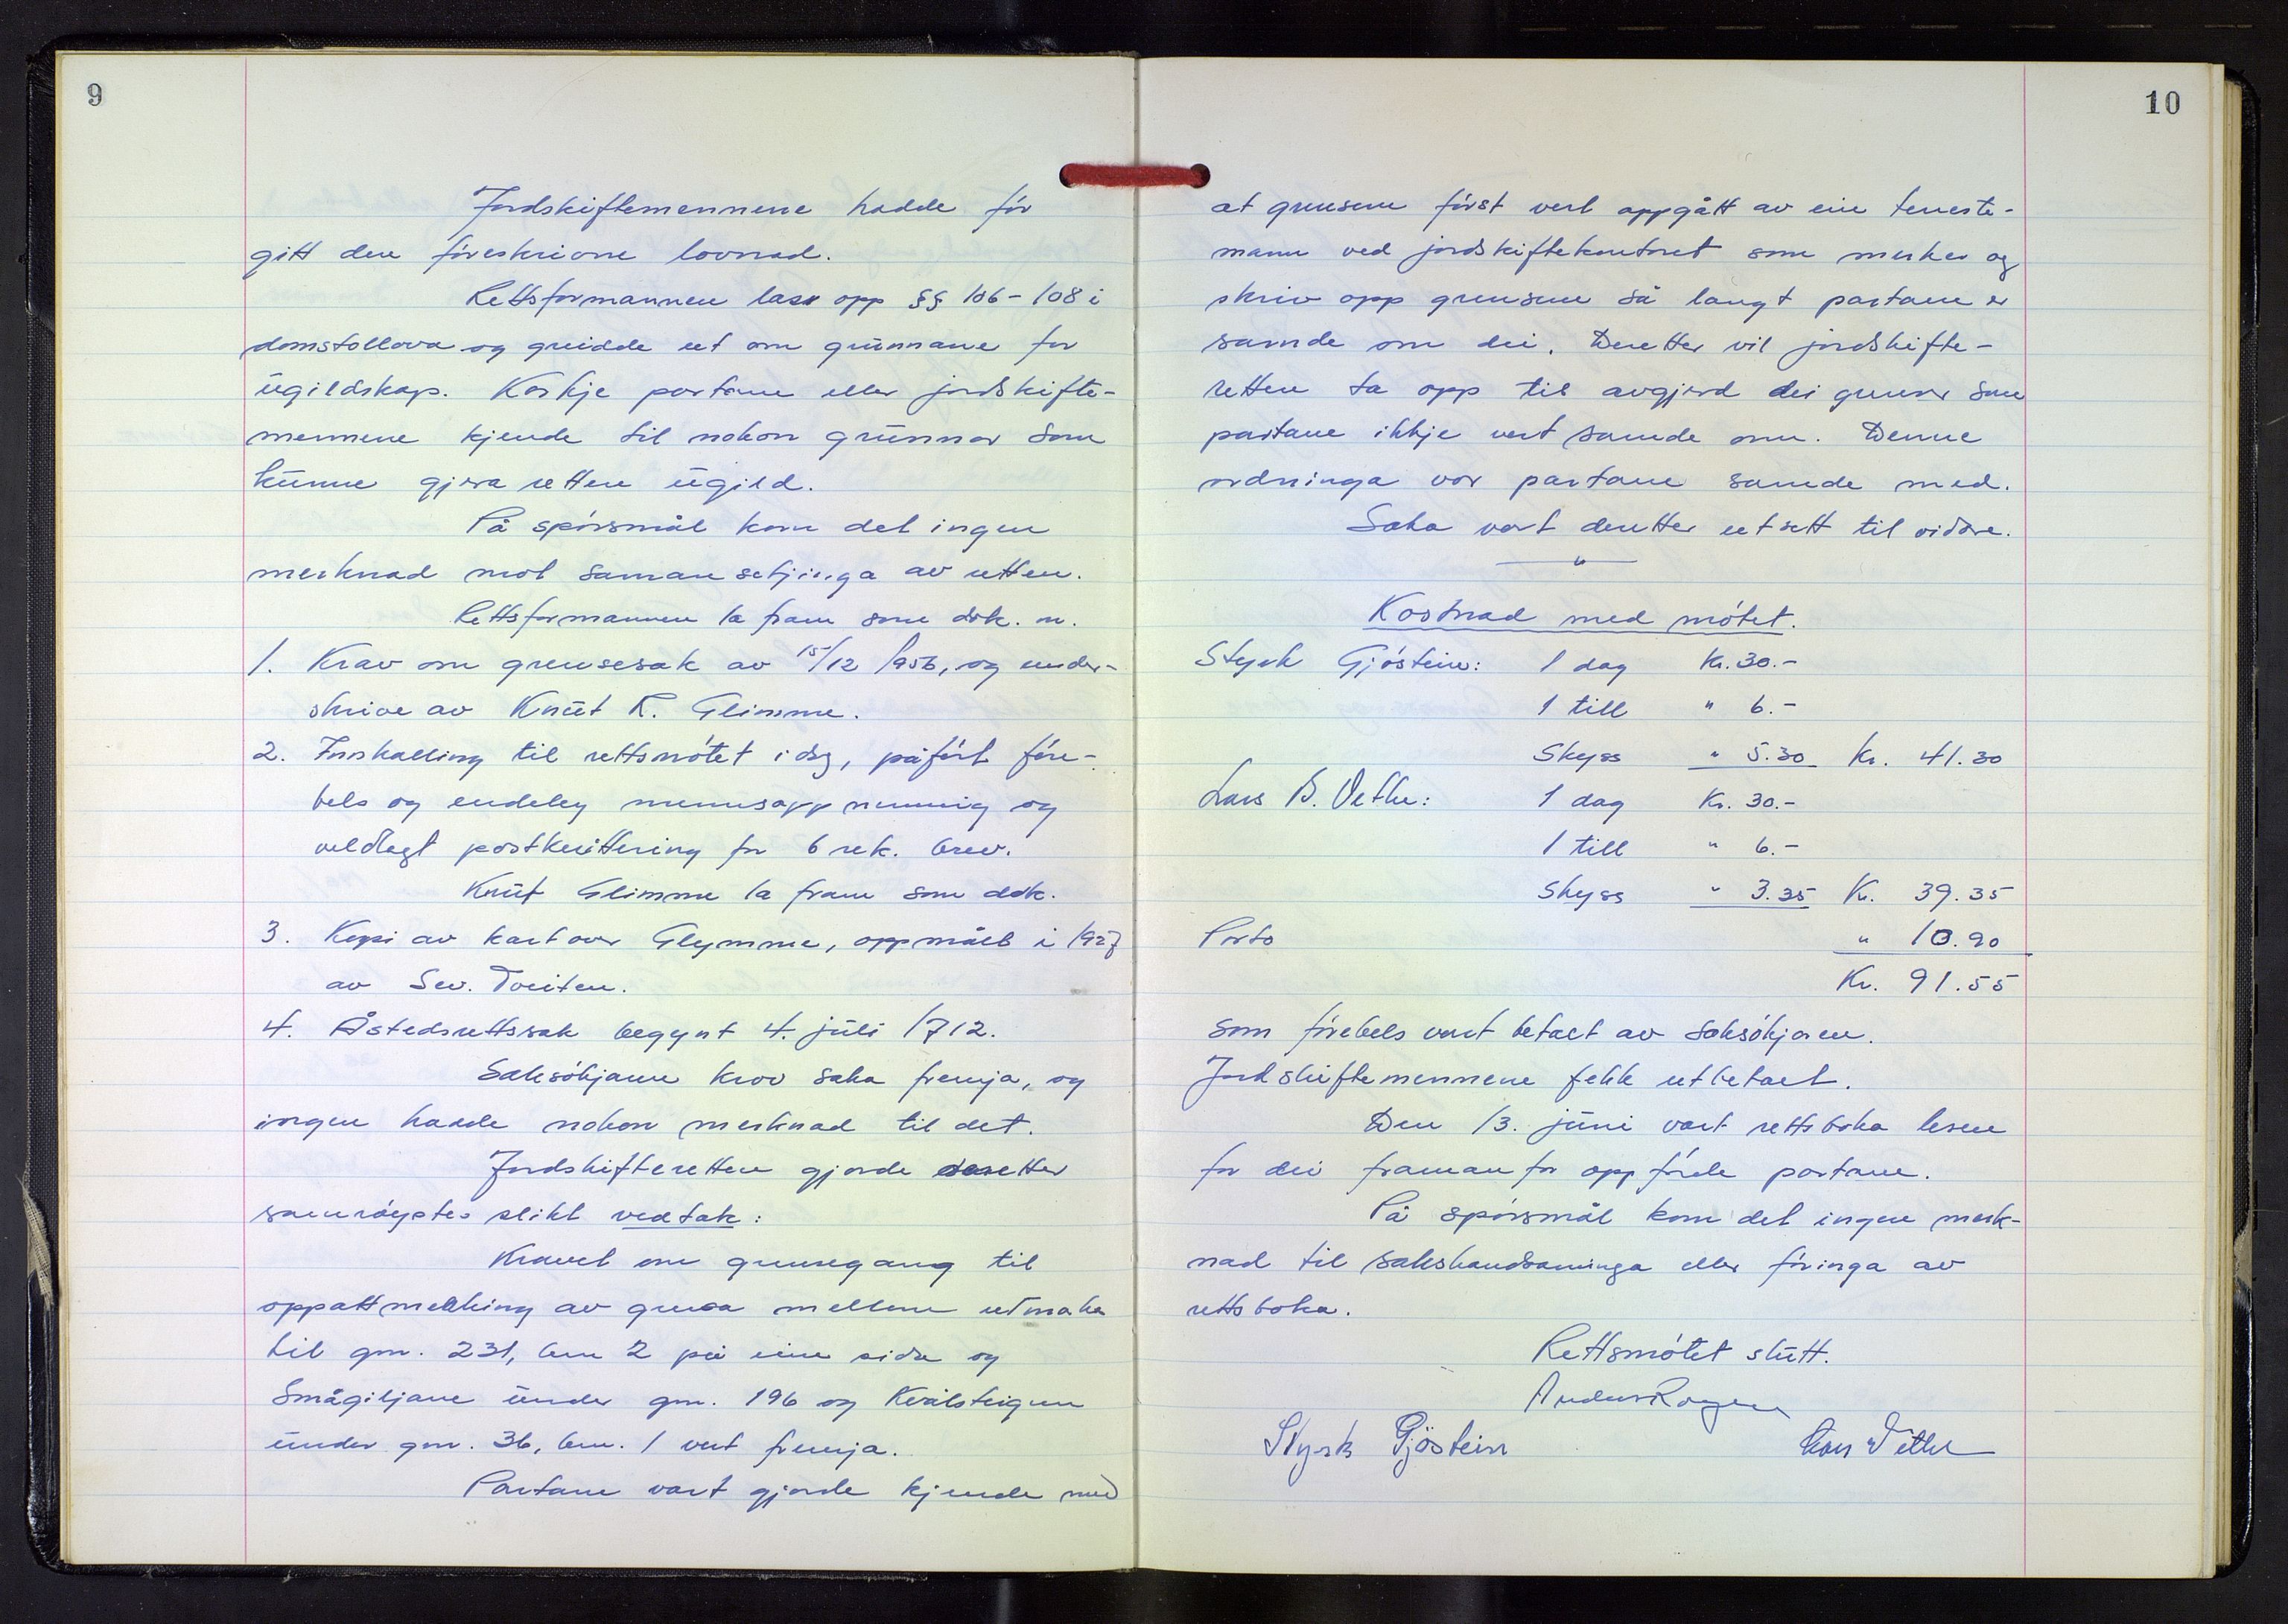 9
Jordskiftemennene hadde fór
gitt den fóreskrivne lovnad.
Rettsformannen las opp §§ 106-108 i
domstollova og greidde ut om grunnane for
ugildskap. Korkje partane eller jordskifte-
mennene kjende til nokon grunnar som
kunne gjera retten ugild.
På spórsmål kom det ingen
merknad mot samansetjinga av retten.
Rettsformannen la fram som dok. nr.
1. Krav om grensesak av 15/12 1956, og under-
skrive av Knut K. Glimme.
2. Innkalling til rettsmótet i dag, påfórt fóre-
bels og endeleg mennsoppnemning og
vedlagt postkvittering for 6 rek. brev.
Knut Glimme la fram som dok.
3. Kopi av kart over Glymme, oppmålt i 1927
av Sev. Tveiten.
4. Åstedsrettssak begynt 4. juli 1712.
Saksókjaren krov saka fremja, og
ingen hadde nokon merknad til det.
Jordskifteretten gjorde deretter
samróystes slikt vedtak:
Kravet om grensegang til
oppattmerking av grensa mellom utmarka
til gnr. 231, bnr 2 på eine sida og
Smågiljane under gnr. 196 og Kvålsteigen
under gnr. 36, bnr. 1 vert fremja.
Partane vart gjorde kjende med
10
at grensene fórst vert oppgått av ein teneste-
mann ved jordskiftekontoret som merker og
skriv opp grensene så langt partane er
samde om dei. Deretter vil jordskifte-
retten ta opp til avgjerd dei grenser som
partane ikkje vert samde om. Denne
ordninga var partane samde med.
Saka vart deretter utsett til vidare.
"
Kostnad med mótet.
Styrk Gjóstein: 1 dag Kr. 30.-
1 till " 6.-
Skyss " 5.30 Kr. 41.30
Lars B. Vethe: 1 dag Kr. 30.-
1 till " 6.-
Skyss " 3.35 Kr. 39.35
Porto " 10.90
Kr. 91.55
som fórebels vart betalt av saksókjaren.
Jordskiftemennene fekk utbetalt.
Den 13. juni vart rettsboka lesen
for dei framanfor oppfórde partane.
På spórsmål kom det ingen merk-
nad til sakshandsaminga eller fóringa av
rettsboka.
Rettsmótet slutt.
Anders
Styrk Gjöstein Lars Vethe